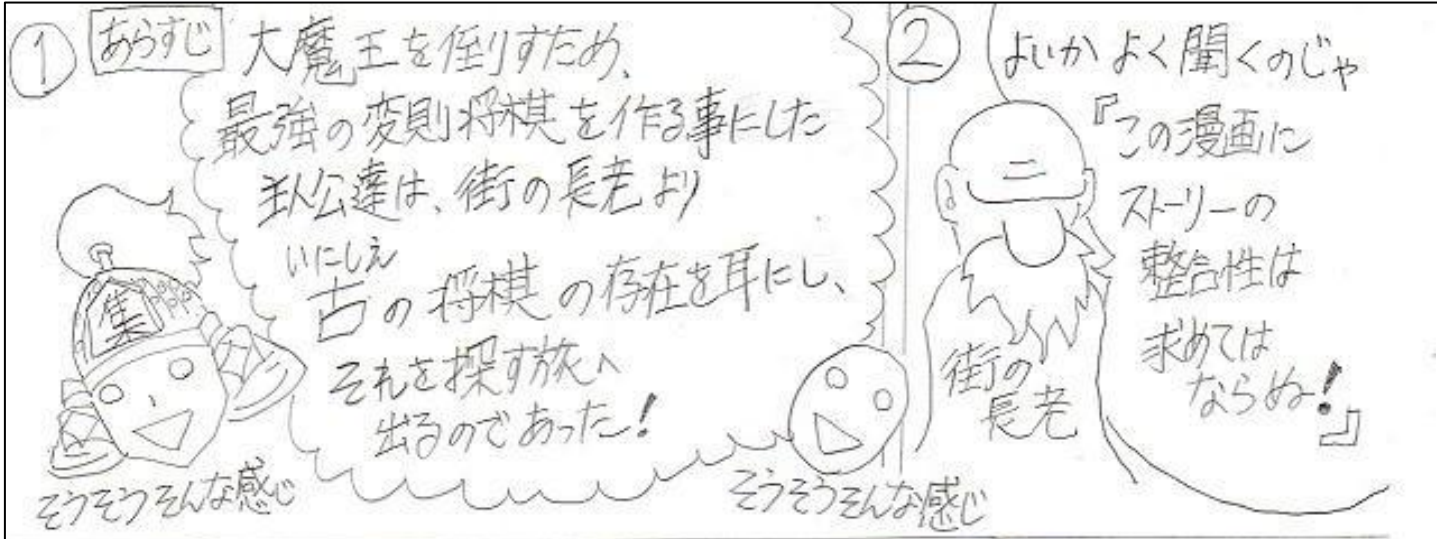 ①
あらすじ
大魔王を倒すため、
最強の変則将棋を作る事にした
主人公達は、街の長老より
いにしえ
古の将棋の存在を耳にし、
それを探す旅へ
出るのであった!
集
そうそうそんな感じ
そうそうそんな感じ
②
よいか よく聞くのじゃ
『この漫画に
ストーリーの
整合性は
求めては
ならぬ!』
街の
長老